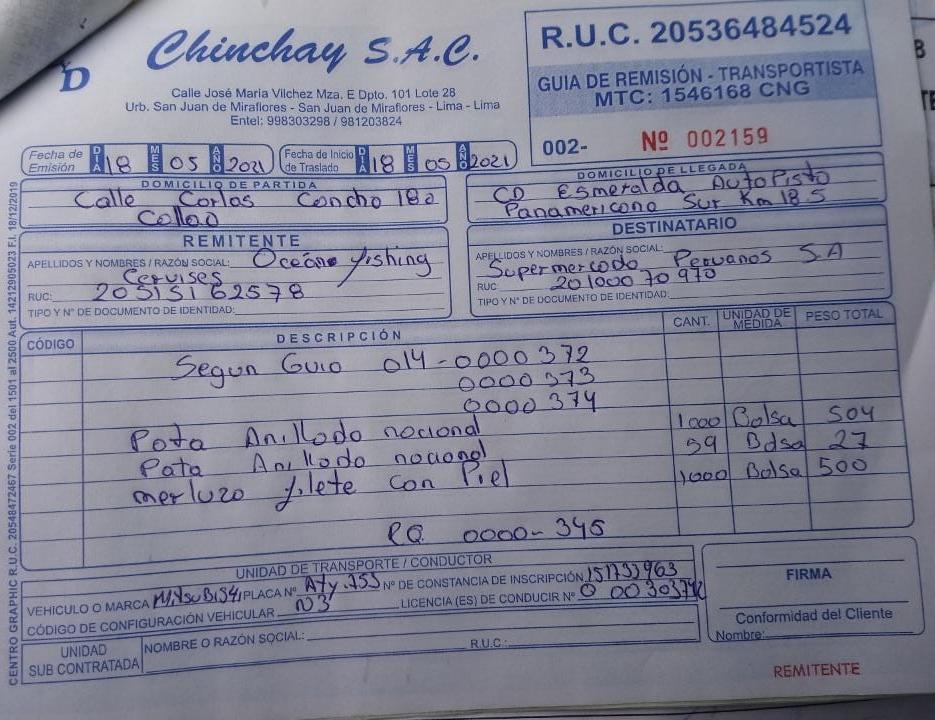 D Chinchay S.A.C.
Calle José Maria Vilchez Mza. E Dpto. 101 Lote 28
Urb. San Juan de Miraflores - San Juan de Miraflores - Lima - Lima
Entel: 998303298 / 981203824
R.U.C. 20536484524
GUIA DE REMISIÓN - TRANSPORTISTA
MTC: 1546168 CNG
002- Nº 002159
Fecha de Emisión DIA 18 MES 05 AÑO 2021 Fecha de Inicio de Traslado DIA 18 MES 05 AÑO 2021
DOMICILIO DE PARTIDA
Calle Corlos Concho 182
Collao
DOMICILIO DE LLEGADA
CD Esmeralda AutoPisto
Panamericono Sur Km 18.5
REMITENTE
APELLIDOS Y NOMBRES / RAZÓN SOCIAL: Oceáno fishing
Cervises
RUC: 20515162578
TIPO Y N° DE DOCUMENTO DE IDENTIDAD:
DESTINATARIO
APELLIDOS Y NOMBRES / RAZÓN SOCIAL:
Supermercodo Peruanos S.A
RUC 20100070970
TIPO Y N° DE DOCUMENTO DE IDENTIDAD:
CÓDIGO DESCRIPCIÓN CANT. UNIDAD DE MEDIDA PESO TOTAL
Segun Guio 014-0000372
0000373
0000374
Pota Anillodo nocional 1000 Bolsa 504
Pota Anillodo nocional 59 Bolsa 27
merluzo filete con Piel 1000 Bolsa 500
PQ 0000-345
UNIDAD DE TRANSPORTE / CONDUCTOR
VEHICULO O MARCA PLACA N° N° DE CONSTANCIA DE INSCRIPCIÓN
CÓDIGO DE CONFIGURACIÓN VEHICULAR N3 LICENCIA (ES) DE CONDUCIR N°
UNIDAD SUB CONTRATADA NOMBRE O RAZÓN SOCIAL: R.U.C.:
FIRMA
Conformidad del Cliente
Nombre:
REMITENTE
CENTRO GRAPHIC R.U.C. 20548472467 Serie 002 del 1501 al 2500 Aut. 14212905023 F.I. 18/12/2019